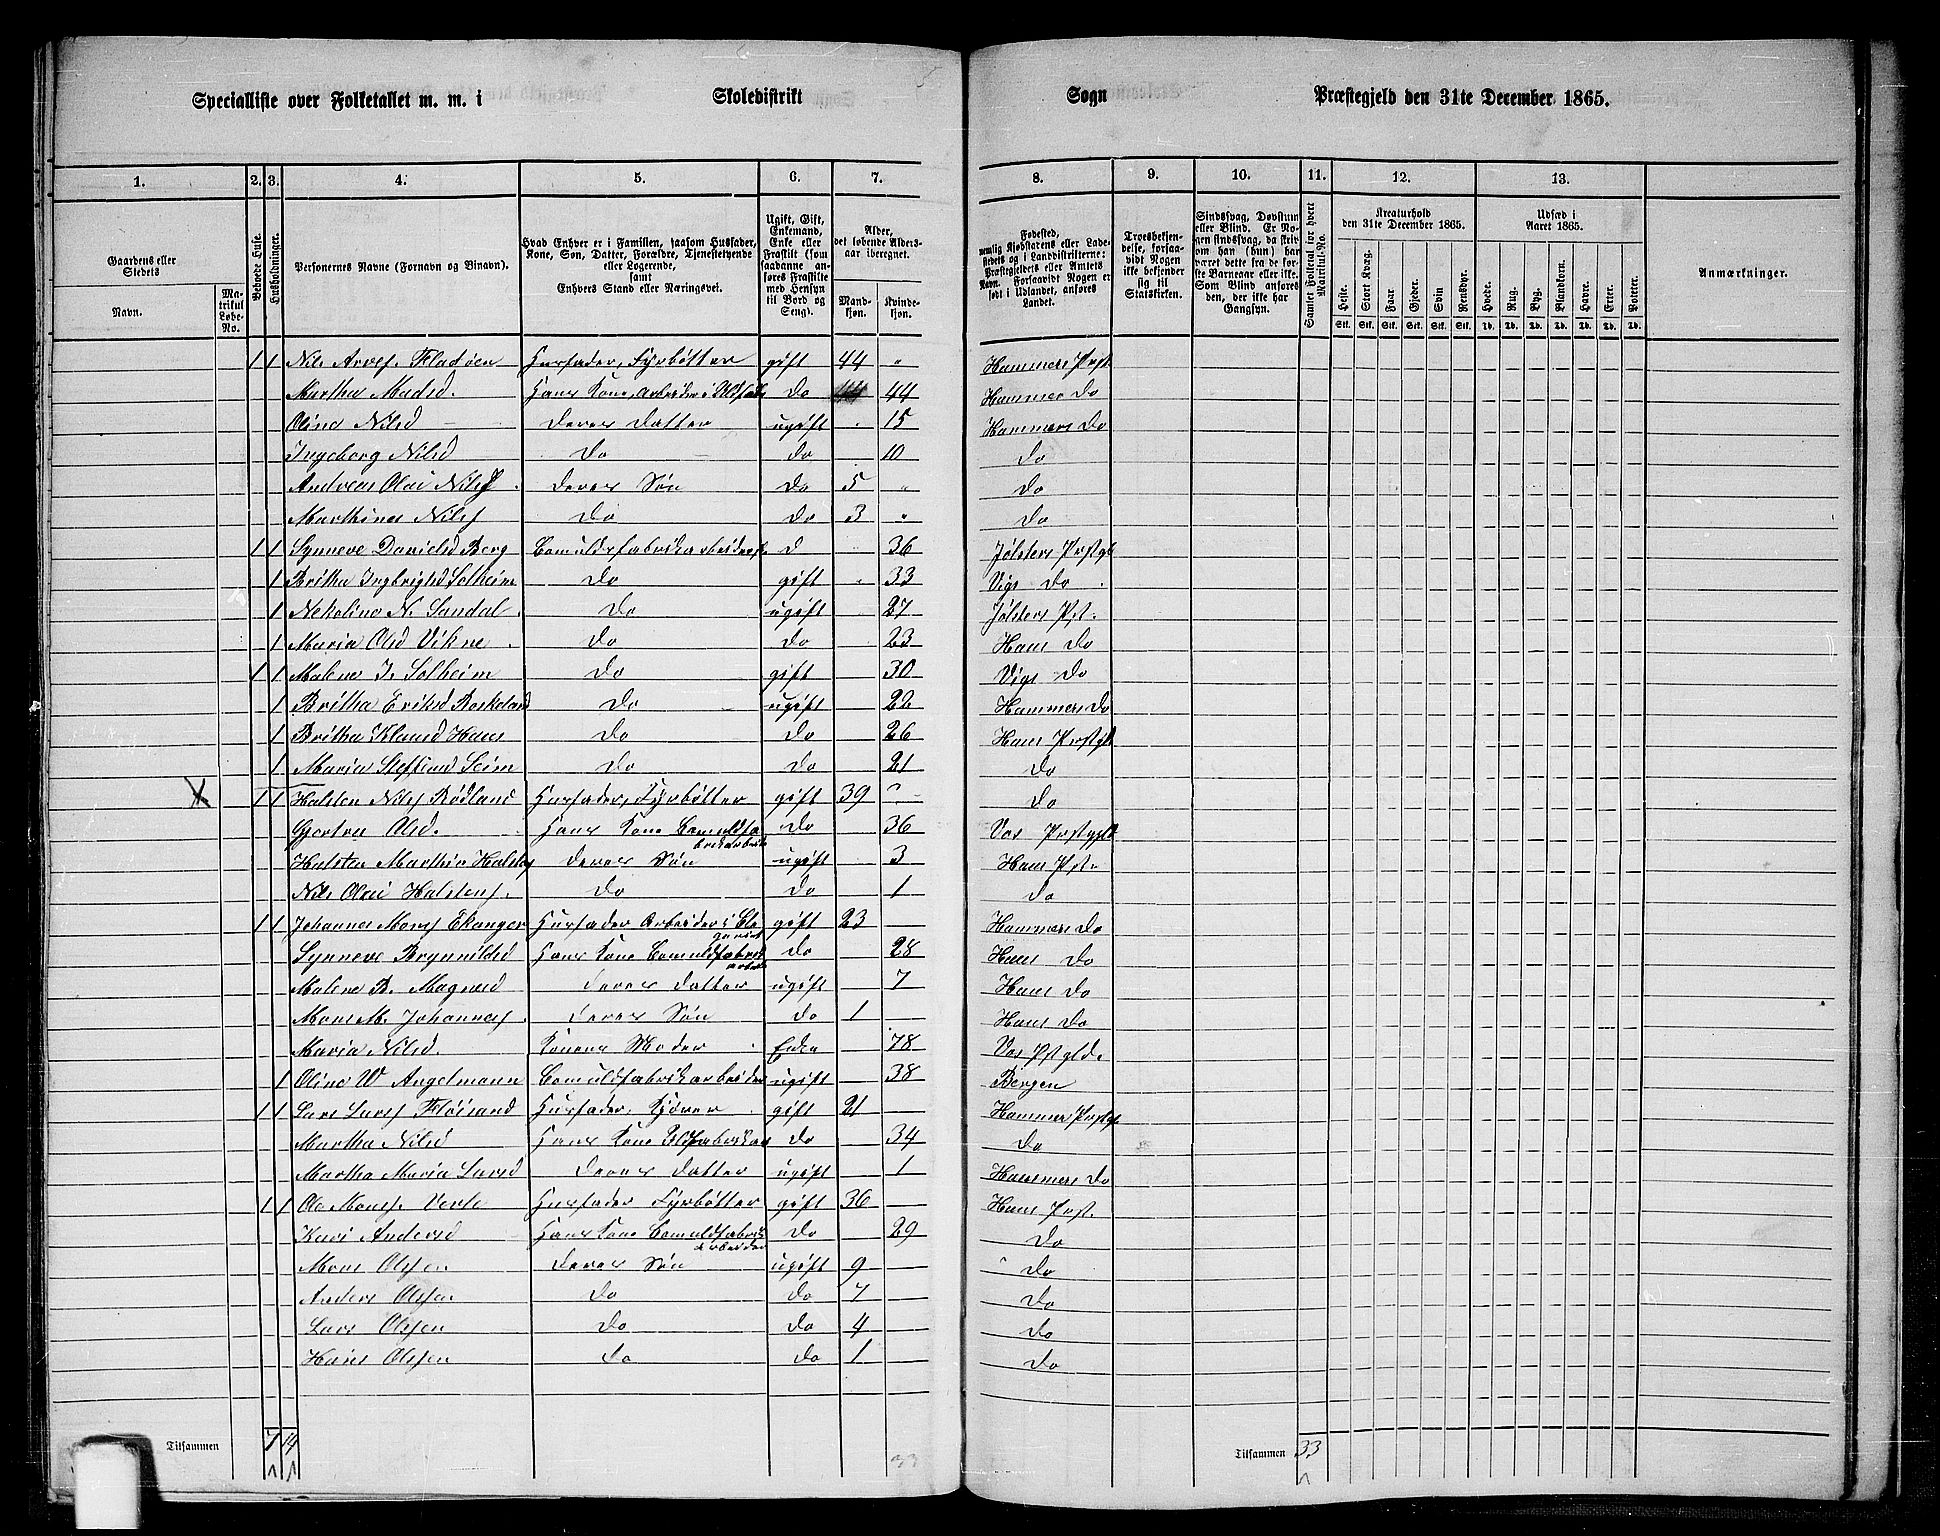 Specialliste over Folketallet m. m. i Skoledistrikt Sogn Præstegjeld den 31te December 1865.
1. 2. 3. 4. 5. 6. 7. 8. 9. 10. 11. 12. 13.
Gaardens eller Stedets
Navn.
Matrikul Løbe-No.
Beboede Huse.
Husholdninger.
Personernes Navne (Fornavn og Binavn).
Hvad Enhver er i Familien, saasom Husfader, Kone, Søn, Datter, Forældre, Tjenestetyende eller Logerende,
samt
Enhvers Stand eller Næringsvei.
Ugift, Gift, Enkemand, Enke eller Fraskilt (som saadanne anføres Fraskilte med Hensyn til Bord og Seng).
Alder, det løbende Aldersaar iberegnet.
Mandkjøn.
Kvindekjøn.
Fødested, nemlig Kjøbstadens eller Ladestedets og i Landdistrikterne: Præstegjeldets eller Amtets Navn. Forsaavidt Nogen er født i Udlandet, anføres Landet.
Troesbekjendelse, forsaavidt Nogen ikke bekjender sig til Statskirken.
Sindssvag, Døvstum eller Blind. Er Nogen sindssvag, da skrives om han (hun) har været dette fra de første Barneaar eller ikke. Som Blind anføres den, der ikke har Gangsyn.
Samlet Folketal for hvert Matrikul-No.
Kreaturhold den 31te December 1865.
Heste. Stort Kvæg. Faar. Gjeder. Svin Rensdyr.
Stk. Stk. Stk. Stk. Stk. Stk.
Udsæd i Aaret 1865.
Hvede. Rug. Byg. Blandkorn. Havre. Erter. Poteter.
Td. Td. Td. Td. Td. Td. Td.
Anmærkninger.
1 1 Nils Arnes. Fladøen Husfader, Fyrbøtter gift 44 " Hammers Prst
Martha Madsd. Hans Kone, Arbeider i do 44 Hammer Do
Olina Nilsd Deres Datter ugift 15 Hammers Do
Ingeborg Nilsd Do do 10 Do
Andreas Olai Nils. Deres Søn do 5 " Do
Marthinus Nils. Do do 3 " Do
1 1 Synneve Danielsd Berg Bomuldsfabrikarbeiders. d 36 Jølsters Prstgl
1 Britha Ingbrigtsd Solheim Do gift 33 Vigs Do
1 N. Sandal Do ugift 27 Jølsters Pst.
1 Maria Olsd Vikne Do do 23 Haus Do
1 1 Malene J. Solheim Do gift 30 Vigs Do
1 Britha Eriksd Do ugift 22 Hammers Do
1 Britha Haus Do do 26 Haus Prstgl
1 Maria Seim Do do 21 Do
X 1 1 Halsten Nils. Rødland Husfader, Fyrbøtter gift 39 Do
Gjertru Olsd. Hans Kone Bomuldsfabrikarbeid do 36 Vos Prstgjld
Halsten Marthin Halst. Deres Søn ugift 3 Haus Pst.
Nils Olai Halstens. Do do 1 Do
1 1 Johannes Mons. Ekanger Husfader Arbeider i gift 23 Hammers Do
Synneve Brynnildsd Hans Kone Bomuldfabrikarbeid do 28 Haus Do
Malene B. Magnesd Deres Datter ugift 7 Haus Do
Mons M. Johannes. Deres Søn do 1 Haus Do
Maria Nilsd. Konens Moder Enke 78 Vos Pstgld
1 Olina W Angelmann Bomuldsfabrikarbeider ugift 38 Bergen
1 1 Lars Lars. Fløisand Husfader, Kjører gift 21 Hammers Prstgl
Martha Nilsd Hans Kone do 34 Do
Martha Maria Larsd Deres Datter ugift 1 Hammers Do
1 1 Ole Mons. Husfader Fyrbøtter gift 36 Haus Prst.
Kari Andersd Hans Kone Bomuldfabrikarbeider do 29 Do
Mons Olsen Deres Søn ugift 9 Do
Anders Olsen Do do 7 Do
Lars Olsen Do do 4 Do
Hans Olsen Do do 1 Do
Tilsammen 7 14 33 Tilsammen 33